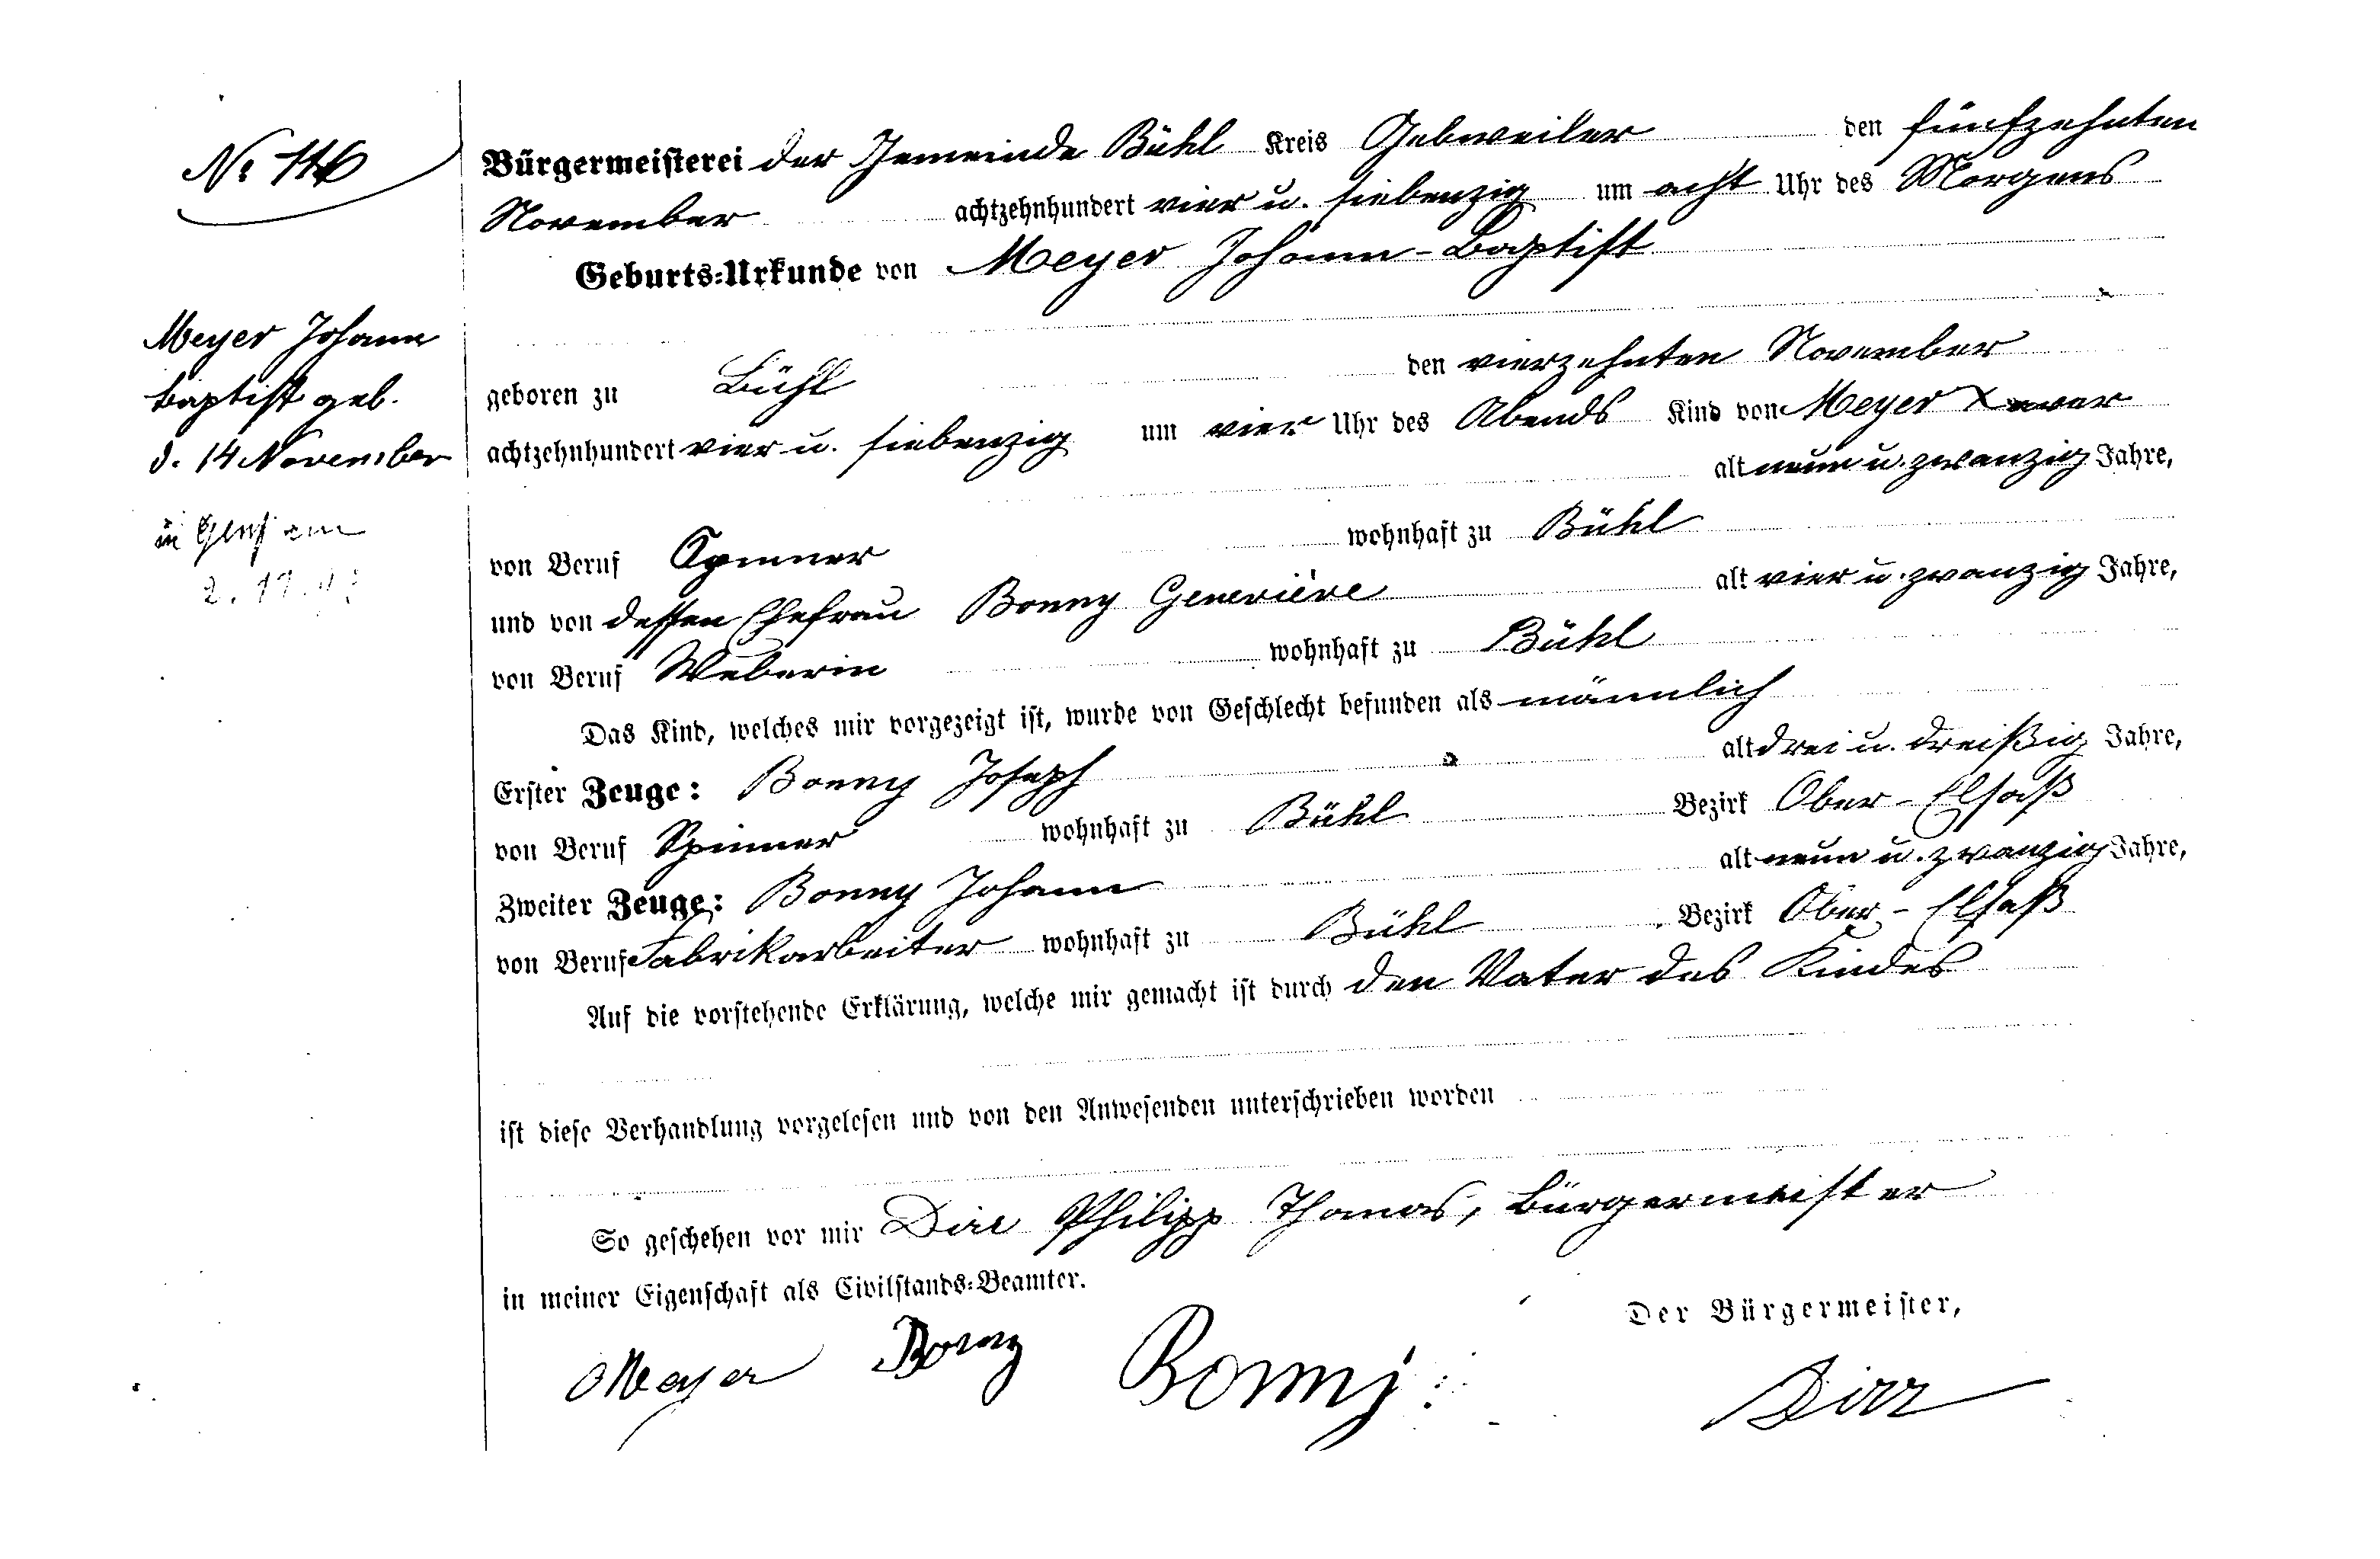 No 116
Bürgermeisterei der Gemeinde Bühl Kreis Gebweiler den fünfzehnten
November achtzehnhundert vier u. siebenzig um acht Uhr des Morgens
Geburts-Urkunde von Meyer Johann-Baptist
Meyer Johann
Baptist geb.
d. 14 November
geboren zu Bühl den vierzehnten November
achtzehnhundert vier u. siebenzig um vier Uhr des Abends Kind von Meyer Xaver
alt neun u. zwanzig Jahre,
von Beruf Spinner wohnhaft zu Bühl
und von dessen Ehefrau Bonny Geneviève alt vier u. zwanzig Jahre,
von Beruf Weberin wohnhaft zu Bühl
Das Kind, welches mir vorgezeigt ist, wurde von Geschlecht befunden als männlich
Erster Zeuge: Bonny Joseph alt drei u. dreißig Jahre,
von Beruf Spinner wohnhaft zu Bühl Bezirk Ober-Elsaß
Zweiter Zeuge: Bonny Johann alt neun u. zwanzig Jahre,
von Beruf Fabrikarbeiter wohnhaft zu Bühl Bezirk Ober-Elsaß
Auf die vorstehende Erklärung, welche mir gemacht ist durch den Vater des Kindes
ist diese Verhandlung vorgelesen und von den Anwesenden unterschrieben worden
So geschehen vor mir Dirr Philipp Thomas, Bürgermeister
in meiner Eigenschaft als Civilstands-Beamter.
Der Bürgermeister,
Meyer Bonny Bonny Dirr